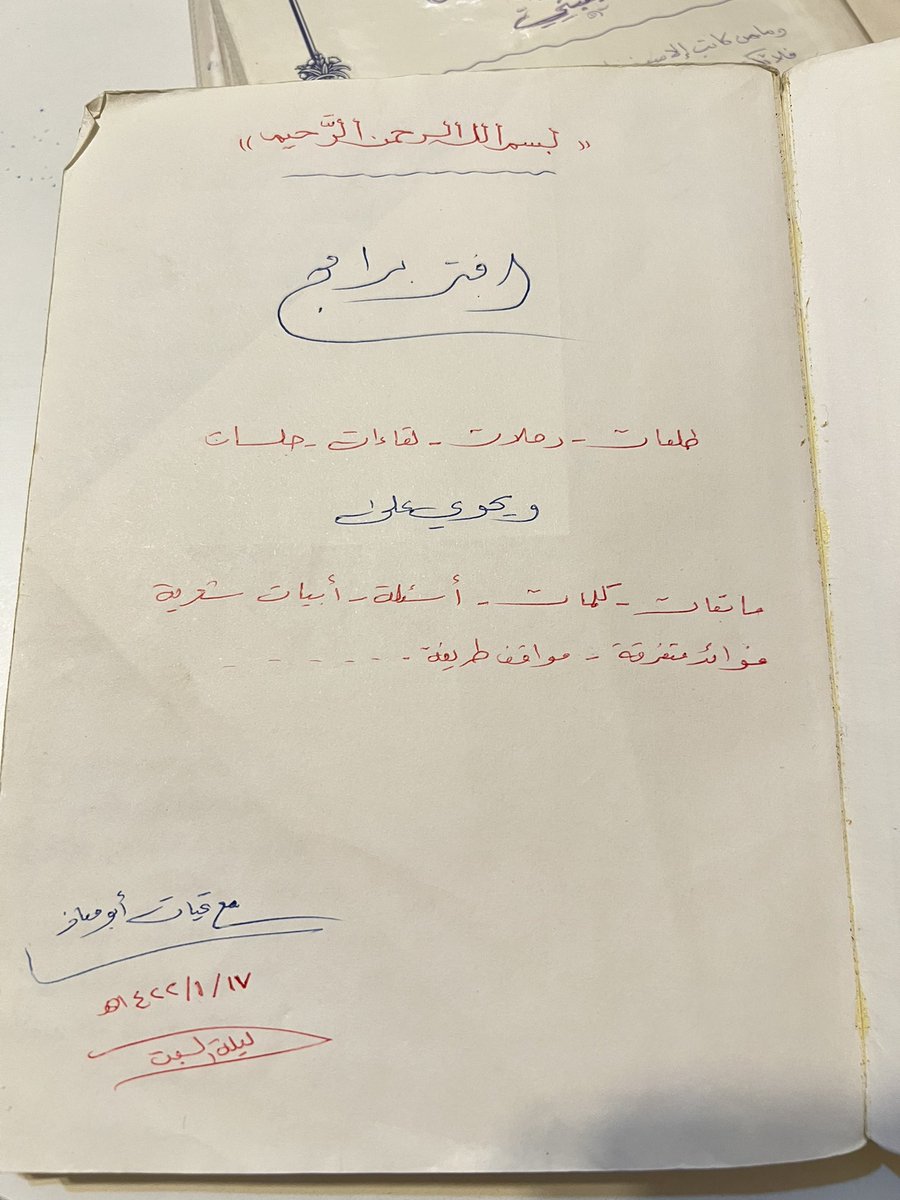 وما من كاتب إلا
« بسم الله الرحمن الرَّحيم »
دفتر برامج
طلعات - رحلات - لقاءات - جلسات
ويحوي على
مسابقات - كلمات - أسئلة - أبيات شعرية
فوائد متفرقة - مواقف طريفة - - - - - -
مع تحيات أبو معاذ
١٤٢٢/١/١٧هـ
ليلة السبت